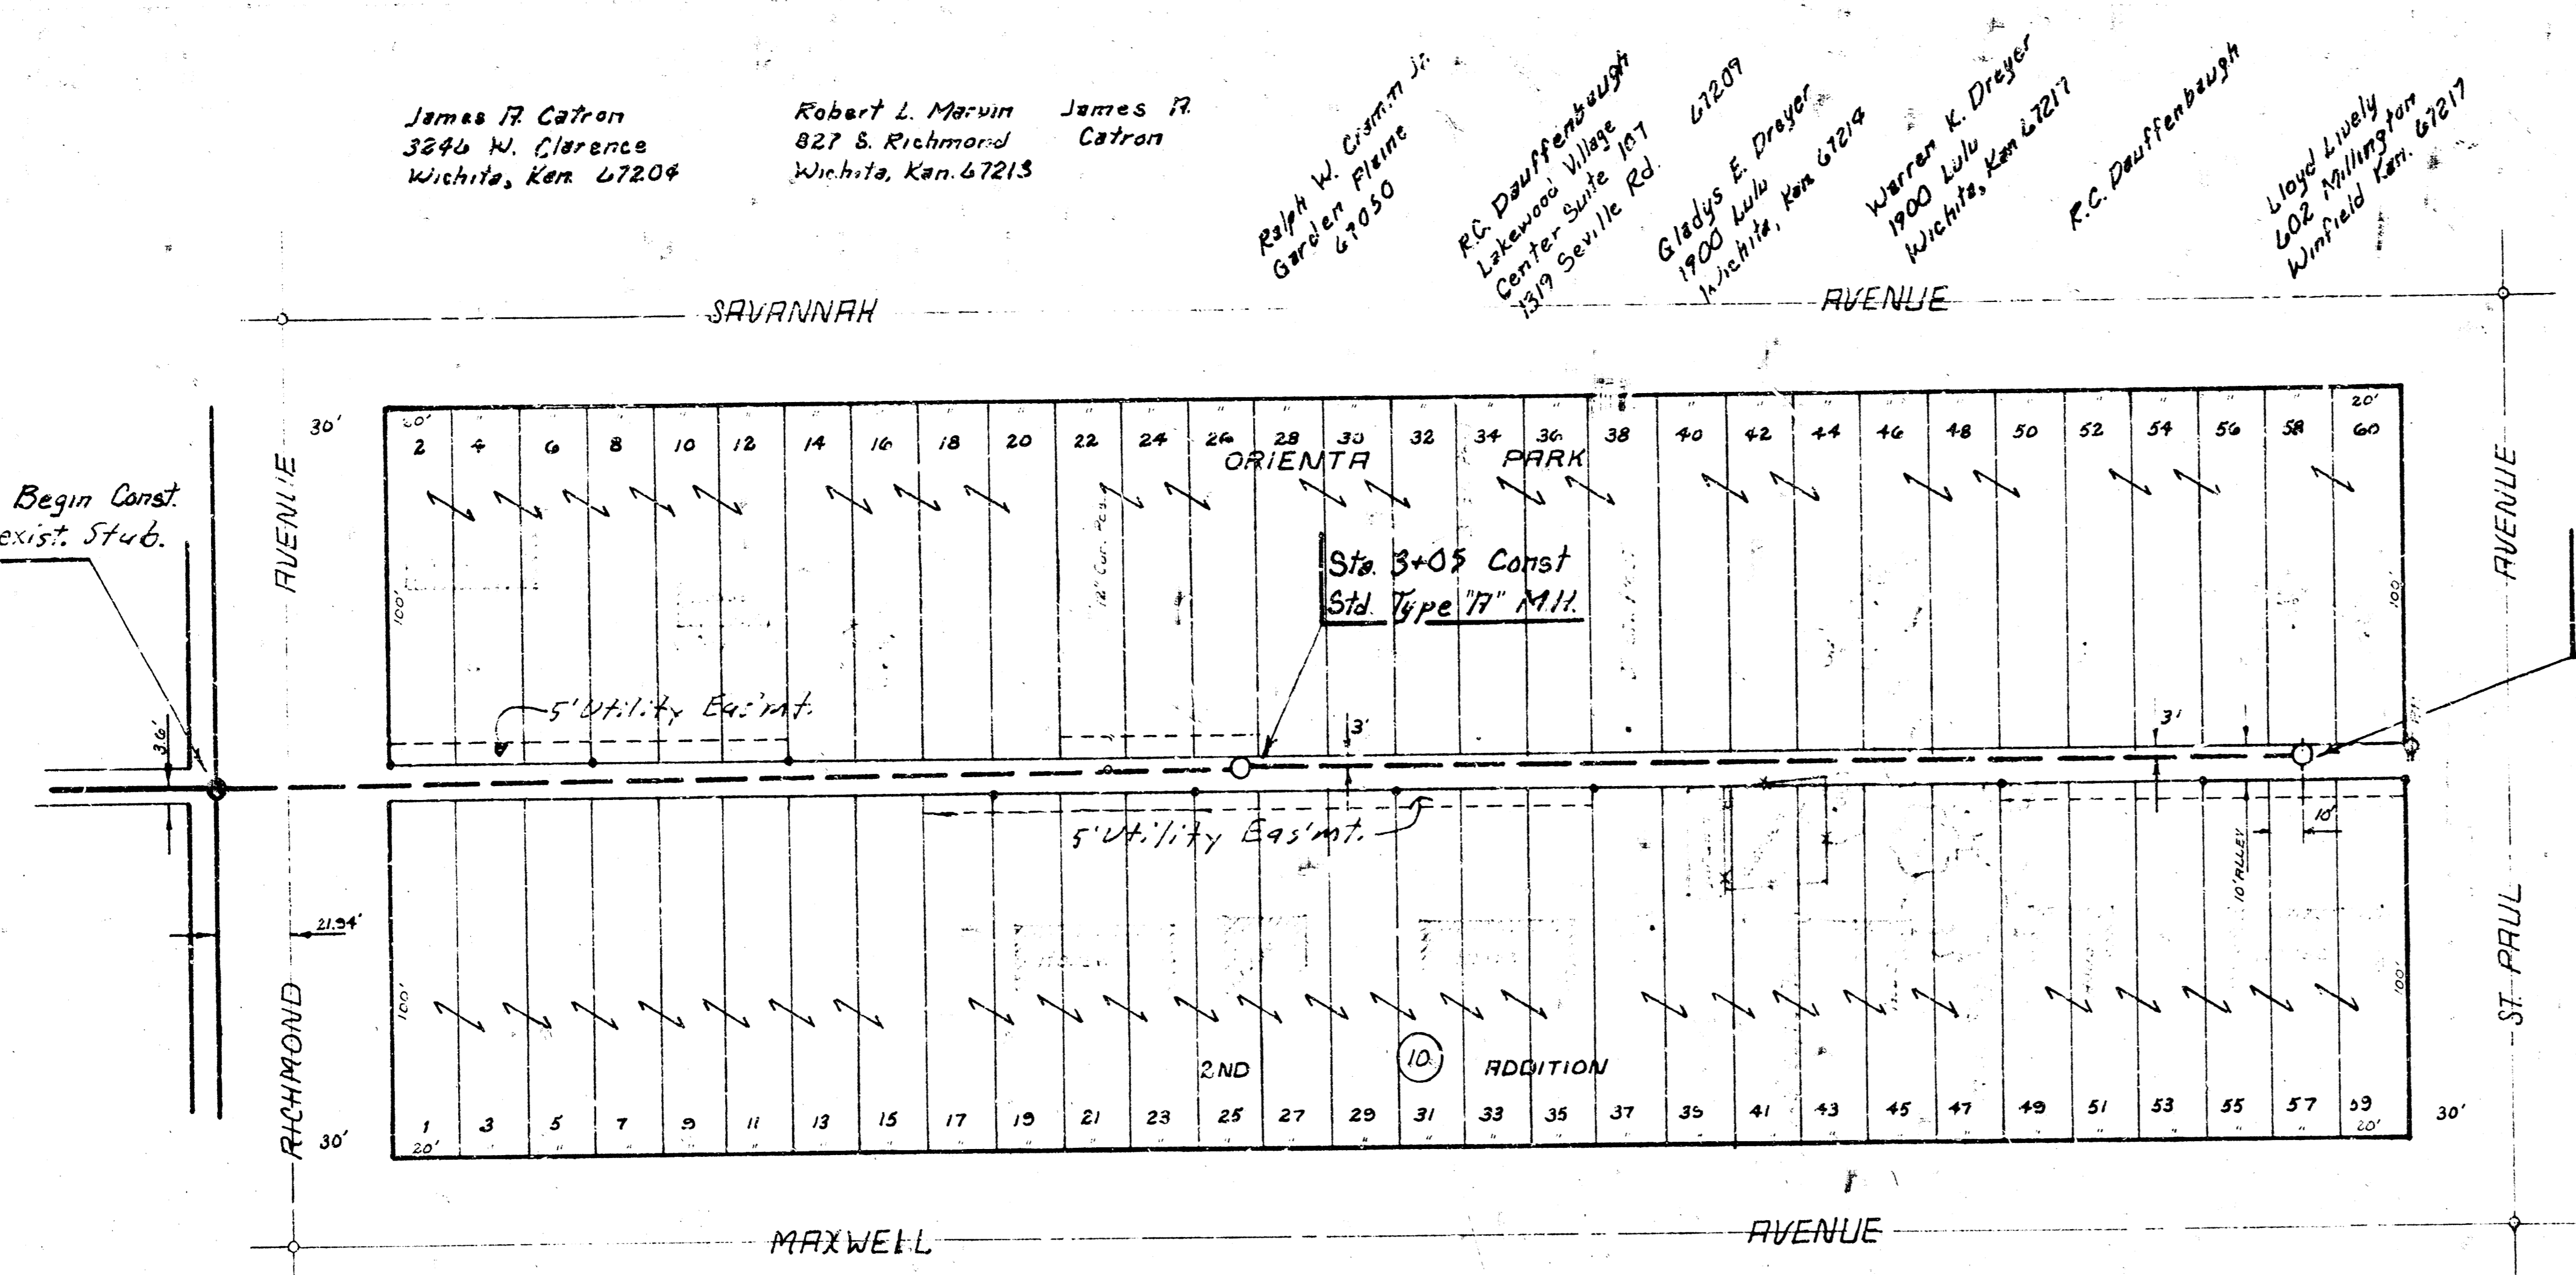 James A. Catron
3246 W. Clarence
Wichita, Kan. 67204
Robert L. Marvin
827 S. Richmond
Wichita, Kan. 67213
James A.
Catron
Ralph W. Jr.
Garden Plaine
67050
R.C. Dauffenbaugh
Lakewood Village
Center Suite 107
1319 Seville Rd. 67209
Gladys E. Dreyer
1900 Lulu
Wichita, Kan 67214
Warren K. Dreyer
1900 Lulu
Wichita, Kan 67217
R.C. Dauffenbaugh
Lloyd Lively
602 Millington
Winfield Kan. 67217
SAVANNAH AVENUE
30'
20' " " " " " " " " " " " " " " " " " " " " " " " " " " " " 20'
2 4 6 8 10 12 14 16 18 20 22 24 26 28 30 32 34 36 38 40 42 44 46 48 50 52 54 56 58 60
ORIENTA PARK
Begin Const.
exist. Stub.
AVENUE
AVENUE
100'
100'
Sta. 3+05 Const
Std. Type "A" M.H.
5' Utility Eas'mt.
3.6'
3'
3'
5' Utility Eas'mt.
10'
10' ALLEY
21.94'
100'
100'
RICHMOND
ST. PAUL
2ND 10 ADDITION
1 3 5 7 9 11 13 15 17 19 21 23 25 27 29 31 33 35 37 39 41 43 45 47 49 51 53 55 57 59
20' " " " " " " " " " " " " " " " " " " " " " " " " " " " " 20'
30'
30'
MAXWELL AVENUE